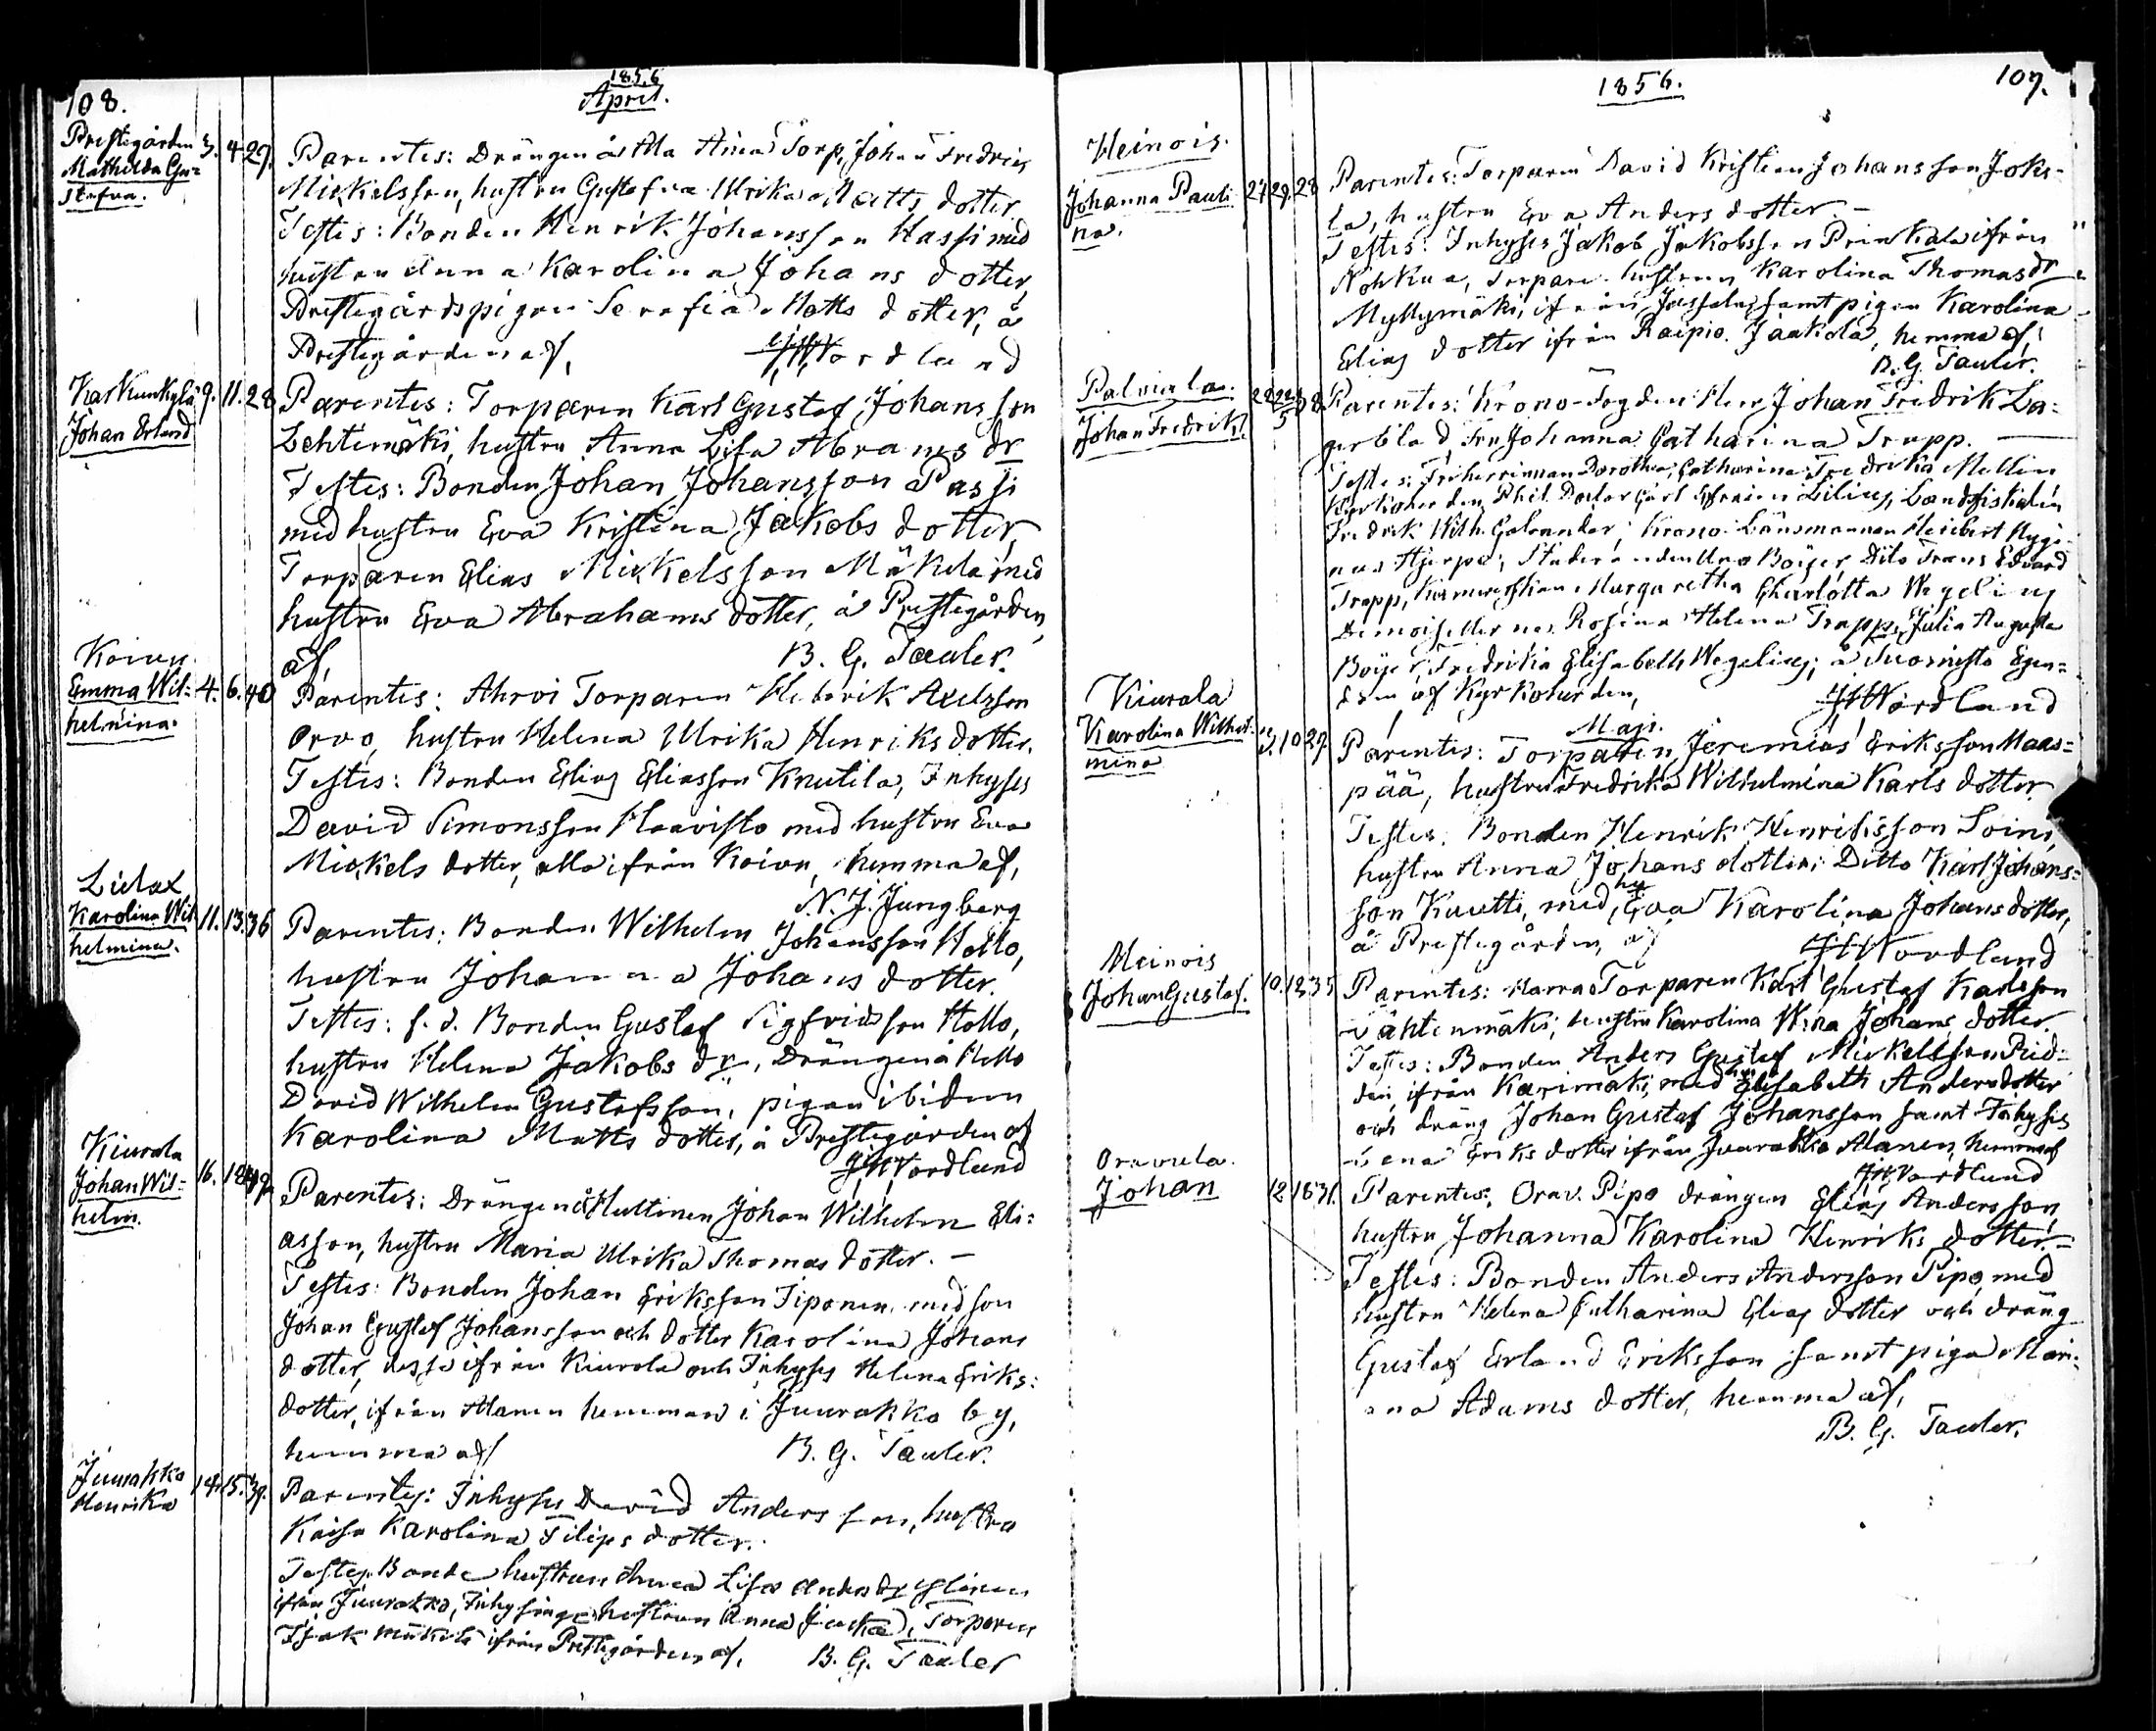 108.
1856
April.
Prestegården 3. 4. 29.
Mathilda Gu=
stafva.
Parentes: Drängen å Ala Äijä Torp, Johan Fredric
Mickelsson, hustru Gustafva Ulrika Matts dotter
Testes: Bonden Henrik Johansson Hassi med
hustru Anna Karolina Johans dotter,
Prestegårdspigan Serafia Matts dotter, å
Prestegården af, Nordlund
Karkunkylä 9. 11. 28
Johan Erland
Parentes: Torparen Karl Gustaf Johansson
Lehtimäki, hustru Anna Lisa Abrams dr
Testes: Bonden Johan Johansson Passi
med hustru Eva Kristina Jakobs dotter,
Torparen Elias Mickelsson Mäkelä med
hustru Eva Abrahams dotter, å Prestegården,
af, B. G. Tauler.
Koivu
Emma Wil= 4. 6. 40
helmina.
Parentes: Ahvoi Torparen Henrik Axelsson
Orvo, hustru Helena Ulrika Henriks dotter.
Testes: Bonden Elias Eliasson Knutila, Inhyses
David Simonsson Haavisto med hustru Eva
Mickels dotter, alla ifrån Koivu, hemma af,
N. J. Jungberg
Liulax
Karolina Wil 11. 13. 36
helmina.
Parentes: Bonden Wilhelm Johansson Hollo,
hustru Johanna Johans dotter.
Testes: f. d. Bonden Gustaf Sigfridsson Hollo,
hustru Helena Jakobs dr, Drängen å Hollo
David Wilhelm Gustafsson, pigan ibidem
Karolina Matts dotter, å Prestegården af
JHNordlund
Kiurala
Johan Wil= 16. 18. 42
helm.
Parentes: Drängen å Huttinen Johan Wilhelm Eli=
asson, hustru Maria Ulrika Thomas dotter. –
Testes: Bonden Johan Eriksson Piponen, med son
Johan Gustaf Johansson och dotter Karolina Johans
dotter, desse ifrån Kiurala och Inhyses Helena Eriks=
dotter, ifrån Alanen hemman i Juurakko by,
hemma af B. G. Tauler.
Juurakko
Henrika 14. 15. 39.
Parentes: Inhyses David Andersson, hustru
Kaisa Karolina Filips dotter.
Testes: Bonde hustrun Anna Lisa Anders dr
ifrån Juurakko, Inhysinge hustrun Anna, Torparen
Isak Mäkelä ifrån Prestegården af, B. G. Tauler
1856.
107.
Heinois.
Johanna Pauli 27 29. 28
na.
Parentes: Torparen David Kristian Johansson Joki-
la, hustru Eva Anders dotter. –
Testes: Inhyses Jakob Jakobsson ifrån
Nohkua, Torpare hustrun Karolina Thomas dr
Myllymäki, ifrån Jussala, samt pigan Karolina
Elias dotter ifrån Raipio. Jaakola, hemma af,
B. G. Tauler.
Palviala.
Johan Fredrik.
Parentes: Krono-Fogden Herr Johan Fredrik La=
gerblad, Fru Johanna Catharina Trapp.
Testes: Friherrinnan Dorothea Catharina Fredrika Mellin
Kyrkoherden, Phil. Doctor Carl Efraim Lilius, Landsfiskalen
Fredrik Wilh. Calamder, Krono-Länsmannen Heribert Hygi-
nus Hjerpe, Studeranden Uno Böijer, Dito Frans Edvard
Trapp, Kamrerskan Margaretha Charlotta Wegelius
Demoisellerna Rosina Helena Trapp, Julia Augusta
Böijer, Fredrika Elisabeth Wegelius; å Suorsisto Egen=
dom af Kyrkoherden, JHNordlund
Maji.
Kiurala
Karolina Wilhel- 9. 10. 29.
mina
Parentes: Torparen Jeremias Eriksson Maas=
pää, hustru Fredrika Wilhelmina Karls dotter
Testes: Bonden Henrik Henriksson Soini,
hustru Anna Johans dotter; Ditto Karl Johans=
son Kuutti, med hu Eva Karolina Johans dotter,
å Prestegården, af JHNordlund
Heinois
Johan Gustaf. 10. 12 35
Parentes: Harra Torparen Karl Gustaf Karlsson
Vähtenmäki; hustru Karolina Wina Johans dotter.
Testes: Bonden Anders Gustaf Mickelsson Prid=
den, ifrån Karimäki, med hu Elisabeth Anders dotter
och dräng Johan Gustaf Johansson samt Inhyses
Lena Eriks dotter ifrån Juurakko Alanen, hemma af
JHNordlund
Oravula.
Johan 12. 16. 31.
Parentes: Orav. Pipo drängen Elias Andersson,
hustru Johanna Karolina Henriks dotter.=
Testes: Bonden Anders Andersson Pipo, med
hustru Helena Catharina Elias dotter och dräng
Gustaf Erland Eriksson samt piga Mari=
ana Adams dotter, hemma af,
B. G. Tauler.